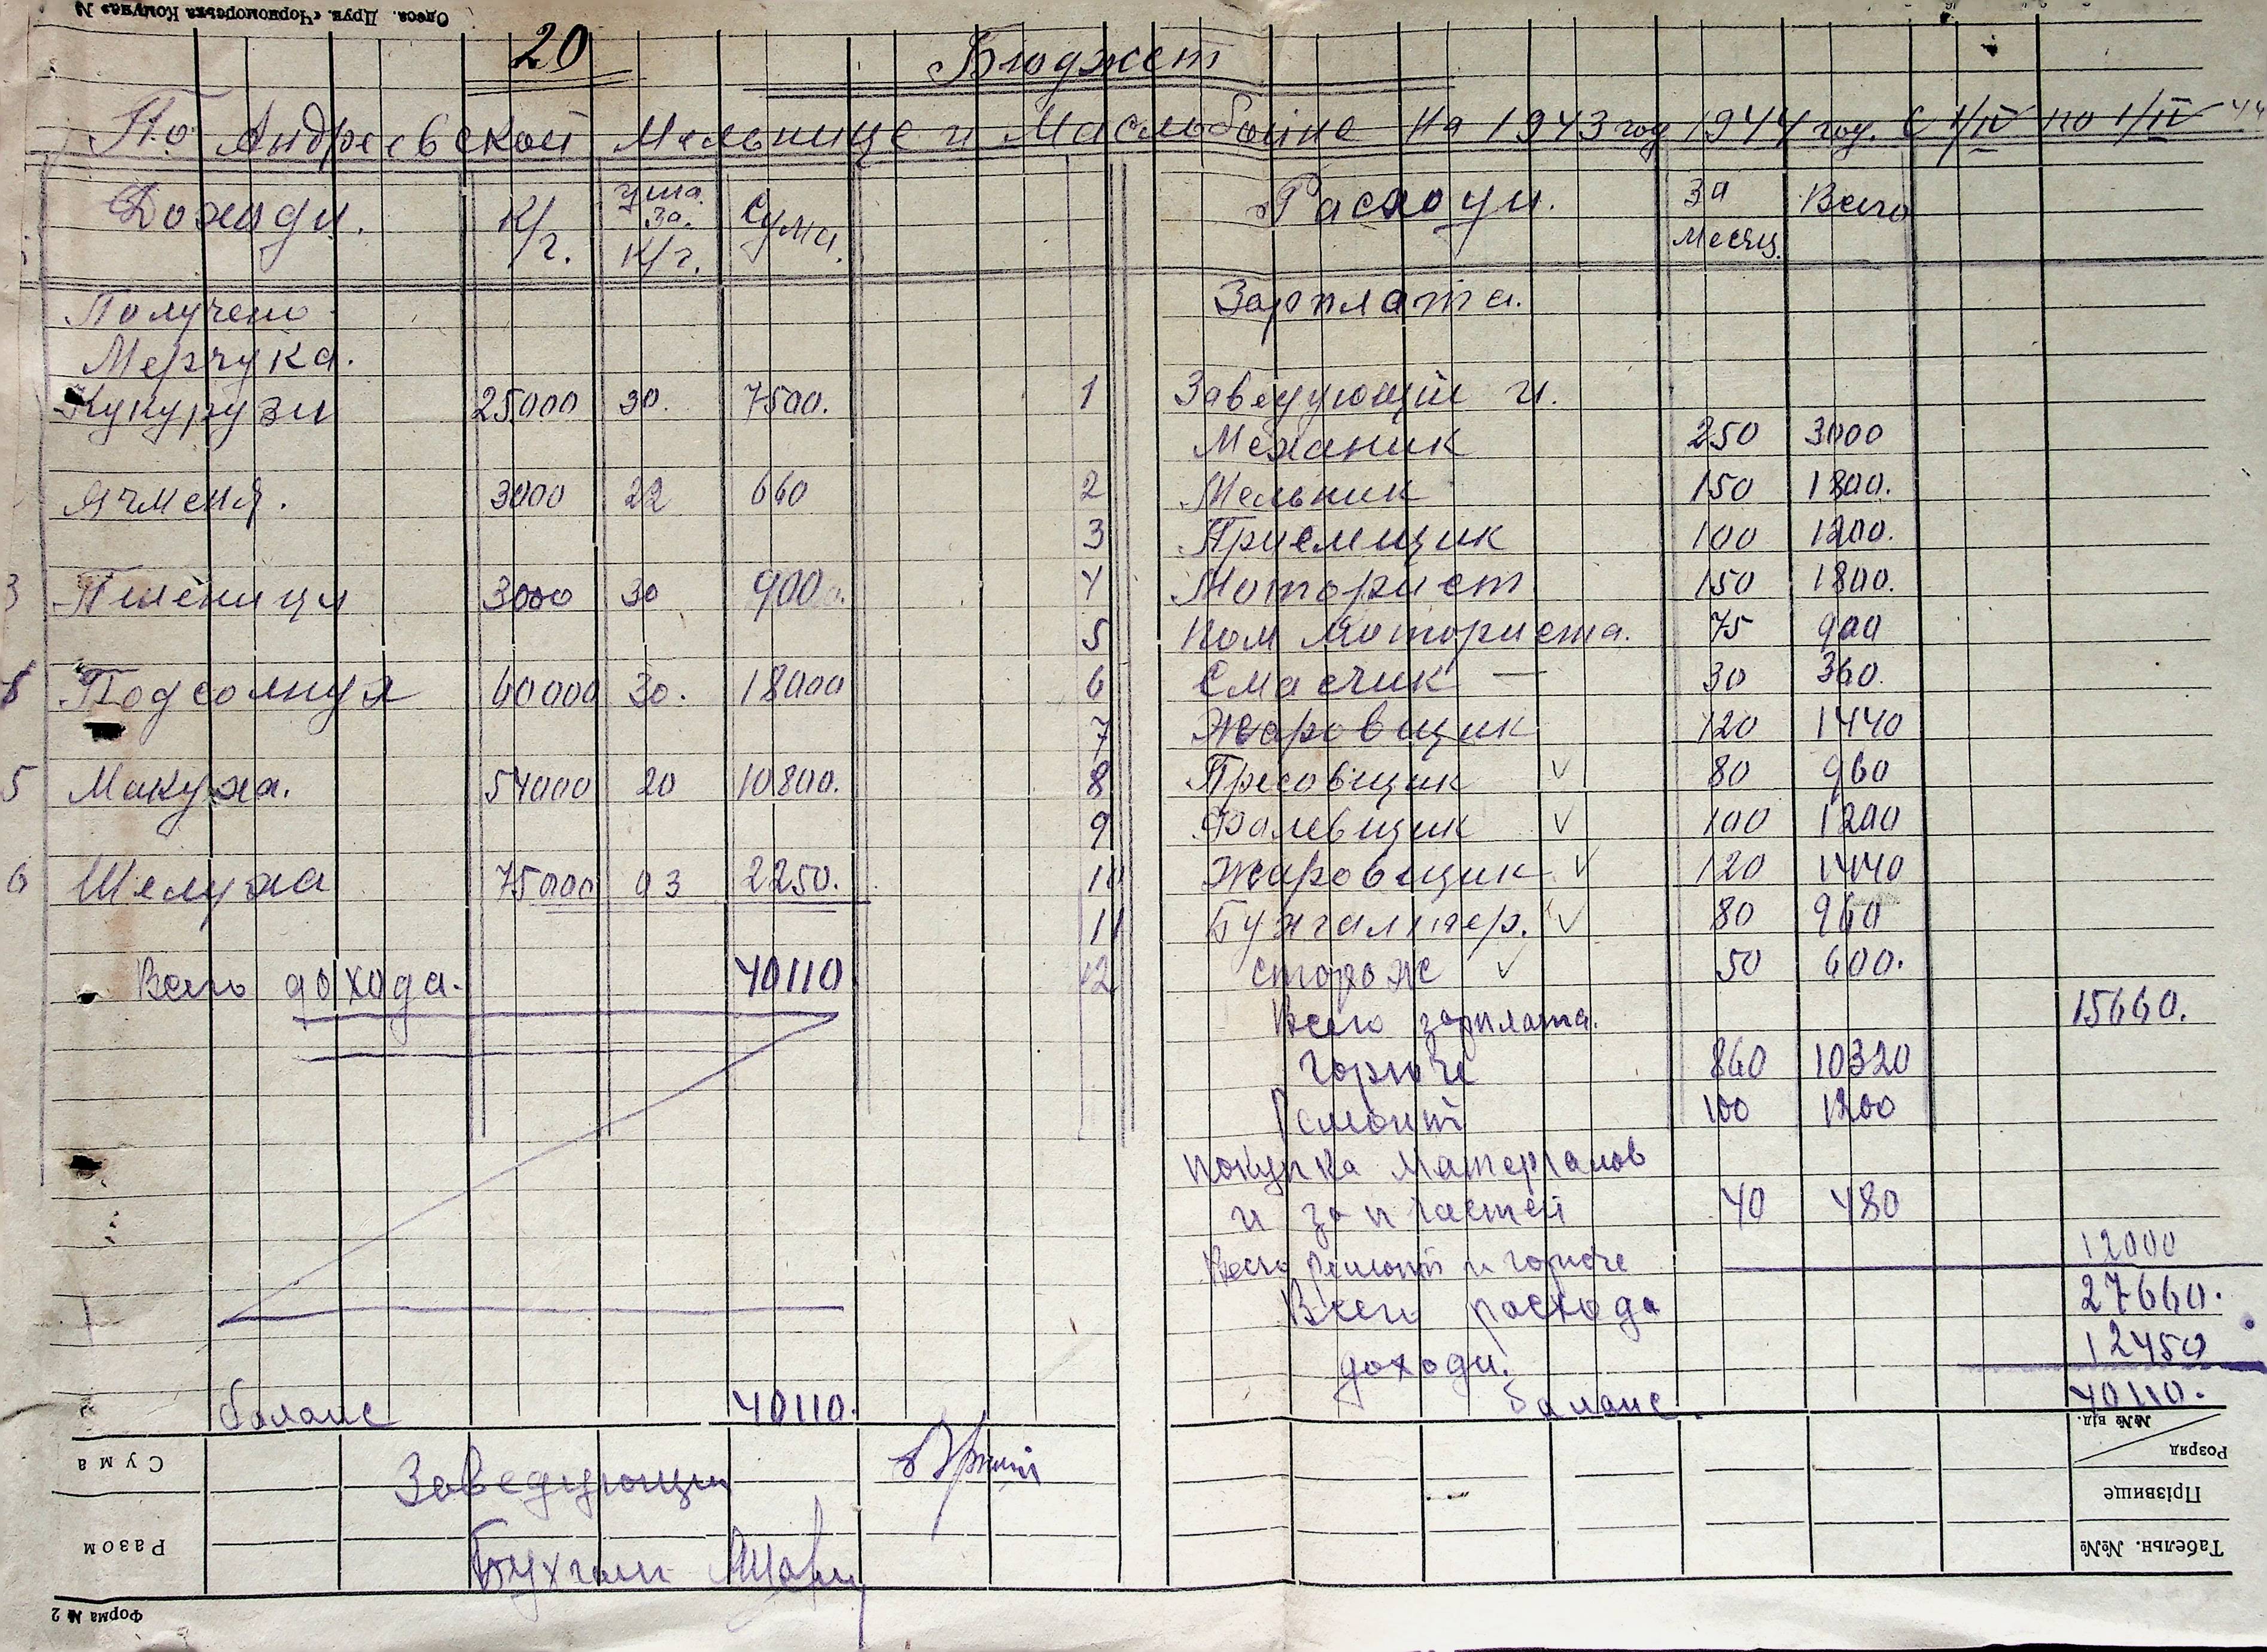 Одеса. Друк. «Чорноморська Комуна» №
20
Бюджет
По Андреевской Мельнице и Маслобойне На 1943 год 1944 год. С 1/IV по 1/IV 44
Доходи. К/г. Цина за К/г. Сума.
Получено
Мерчука.
Кукурузи 25000 30. 7500.
Ячменя. 3000 22 660
3 Пшеници 3000 30 900
Подсолнуя 60000 30. 18000
5 Макуха. 54000 20 10800.
6 Шелуха 75000 03 2250.
Всего дохода. 40110
баланс 40110.
Расходи. За месяц. Всего
Зарплата.
1 Заведующий и.
Механик 250 3000
2 Мельник 150 1800.
3 Приемщик 100 1200.
4 Моторист 150 1800.
5 Пом Моториста. 75 900
6 Смасчик — 30 360.
7 Жаровщик 120 1440
8 Пресовщик V 80 960
9 Валевщик V 100 1200
10 Жаровщик V 120 1440
11 Бухгалтер. V 80 960
12 сторож V 50 600.
Всего зарплата. 15660.
Горюче 860 10320
Ремонт 100 1200
покупка материалов
и запчастей 40 480
Всего ремонт и горюче 12000
Всего расхода 27660.
доходи. 12450
баланс. 40110.
Заведующи
Бухгалт
Сума
Разом
Форма № 2
№№ від.
Розряд
Прізвище
Табельн. №№